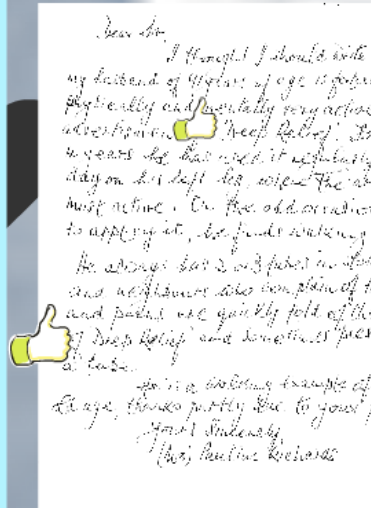 Dear Sir,
I thought I should write
my husband of 91 years of age is
physically and mentally very active
"Deep Relief".
years he has used it regularly
day on his left leg, where the
most active. On the odd occasion
to apply it, he finds walking
He always has 2 or 3 tubes in
and neighbours who complain of
and pains are quickly told of the
of Deep Relief and sometimes
a tube.
He is a walking example of
old age, thanks partly due to your
Yours Sincerely,
(Mrs) Pauline Richards